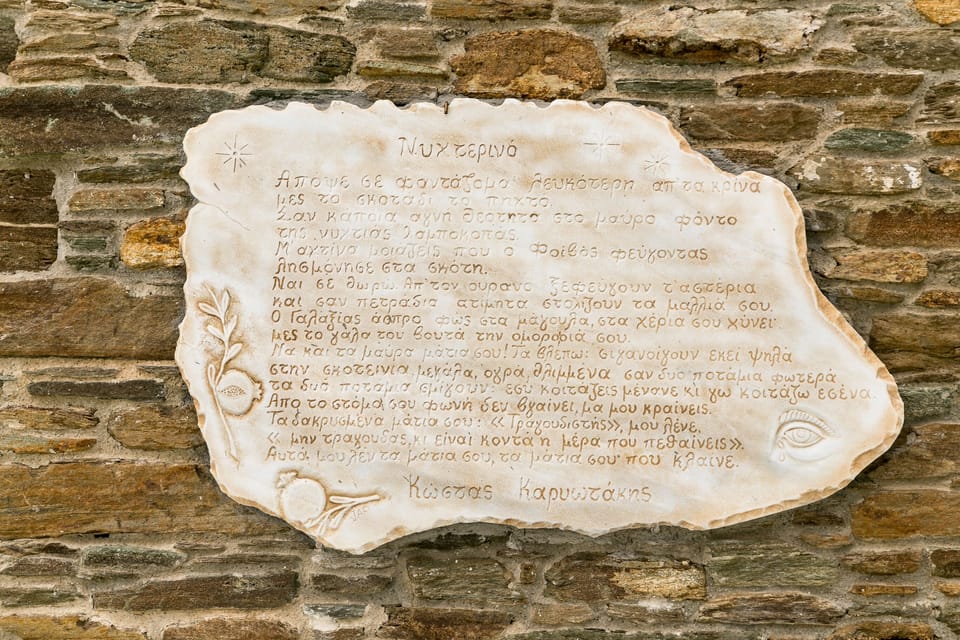 Νυχτερινό
Απόψε σε φαντάζομαι λευκότερη απ' τα κρίνα
μες το σκοτάδι το πηχτό.
Σαν κάποια αγνή θεότητα στο μαύρο φόντο
της νυχτιάς λαμποκοπάς.
Μ' αχτίνα μοιάζεις που ο Φοίβος φεύγοντας
λησμόνησε στα σκότη.
Ναι σε θωρώ. Απ' τον ουρανό ξεφεύγουν τ' αστέρια
και σαν πετράδια ατίμητα στολίζουν τα μαλλιά σου.
Ο Γαλαξίας άσπρο φως στα μάγουλα, στα χέρια σου χύνει
μες το γάλα του βουτά την ομορφιά σου.
Να και τα μαύρα μάτια σου! Τα βλέπω: σιγανοίγουν εκεί ψηλά
στην σκοτεινιά, μεγάλα, υγρά, θλιμμένα σαν δυό ποτάμια φωτερά
τα δυό ποτάμια σμίγουν: εσύ κοιτάζεις μένανε κι γω κοιτάζω εσένα.
Από το στόμα σου φωνή δεν βγαίνει, μα μου κραίνεις.
Τα δακρυσμένα μάτια σου: «Τραγουδιστής», μου λένε.
«μην τραγουδάς, κι είναι κοντά η μέρα που πεθαίνεις».
Αυτά μου λεν τα μάτια σου, τα μάτια σου που κλαίνε.
Κώστας Καρυωτάκης